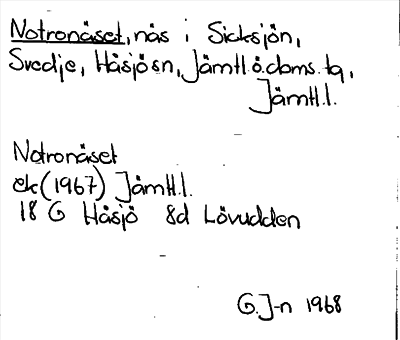 Notronäset, näs i Sicksjön,
Svedje, Håsjö sn, Jämtl.ö.doms.tg,
Jämtl.l.
Notronäset
ek (1967) Jämtl.l.
18 G Håsjö 8d Lövudden
G.J-n 1968